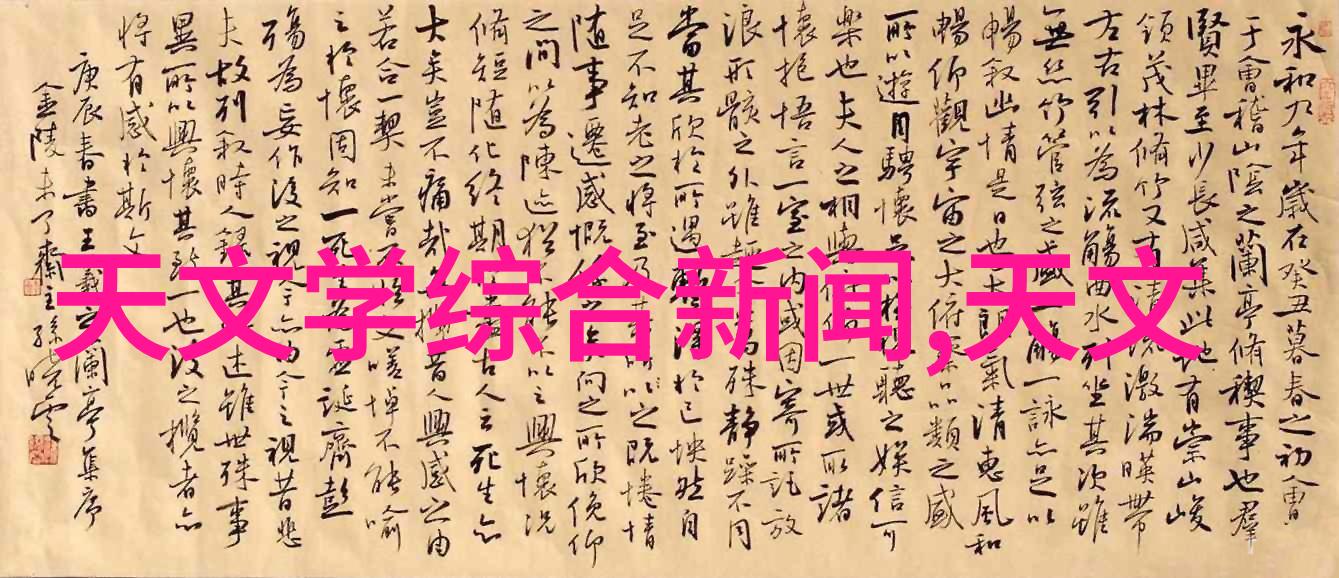 永和九年歲在癸丑暮春之初會
于會稽山陰之蘭亭脩稧事也羣
賢畢至少長咸集此地有崇山峻
領茂林脩竹又有清流激湍暎帶
左右引以為流觴曲水列坐其次雖
無絲竹管弦之盛一觴一詠亦足以
暢敘幽情是日也天朗氣清惠風和
暢仰觀宇宙之大俯察品類之盛
所以遊目騁懷足以極視聽之娛信可
樂也夫人之相與俯仰一世或取諸
懷抱悟言一室之內或因寄所託放
浪形骸之外雖趣舍萬殊靜躁不同
當其欣於所遇蹔得於己怏然自
足不知老之將至及其所之既惓情
隨事遷感慨係之矣向之所欣俛仰
之間以為陳迹猶不能不以之興懷況
脩短隨化終期於盡古人云死生亦
大矣豈不痛哉每攬昔人興感之由
若合一契未嘗不臨文嗟悼不能喻
之於懷固知一死生為虛誕齊彭
殤為妄作後之視今亦由今之視昔悲
夫故列敘時人錄其所述雖世殊事
異所以興懷其致一也後之攬者亦
將有感於斯文
庚辰春書王羲之蘭亭集序
金陵未了齋主孫曉雲
天文学综合新闻,天文